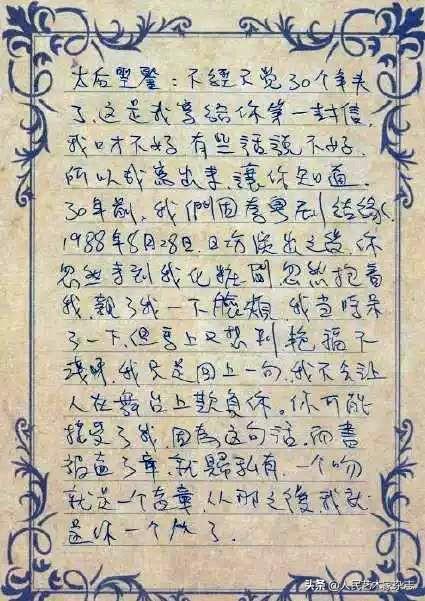 太后聖鑒：不經不覺30个年头
了，这是我寫給你第一封信，
我口才不好 有些话說不好，
所以我寫出来，讓你知道。
30年前，我們因李粵利结缘，
1988年8月28日，日场演出之後，你
忽然走到我化粧間忽然抱着
我，親了我一下臉頰，我当時呆
了一下，但馬上又想到，艳福不
淺啊，我只是回上一句，我不会让
人在舞台上欺負你。你可能
接受了我，因為这句话，而書
盖了章，就歸私有，一个吻
就是一个盖章，从那之後，我就
是你一个人了。
头条 @人民艺术家杂志